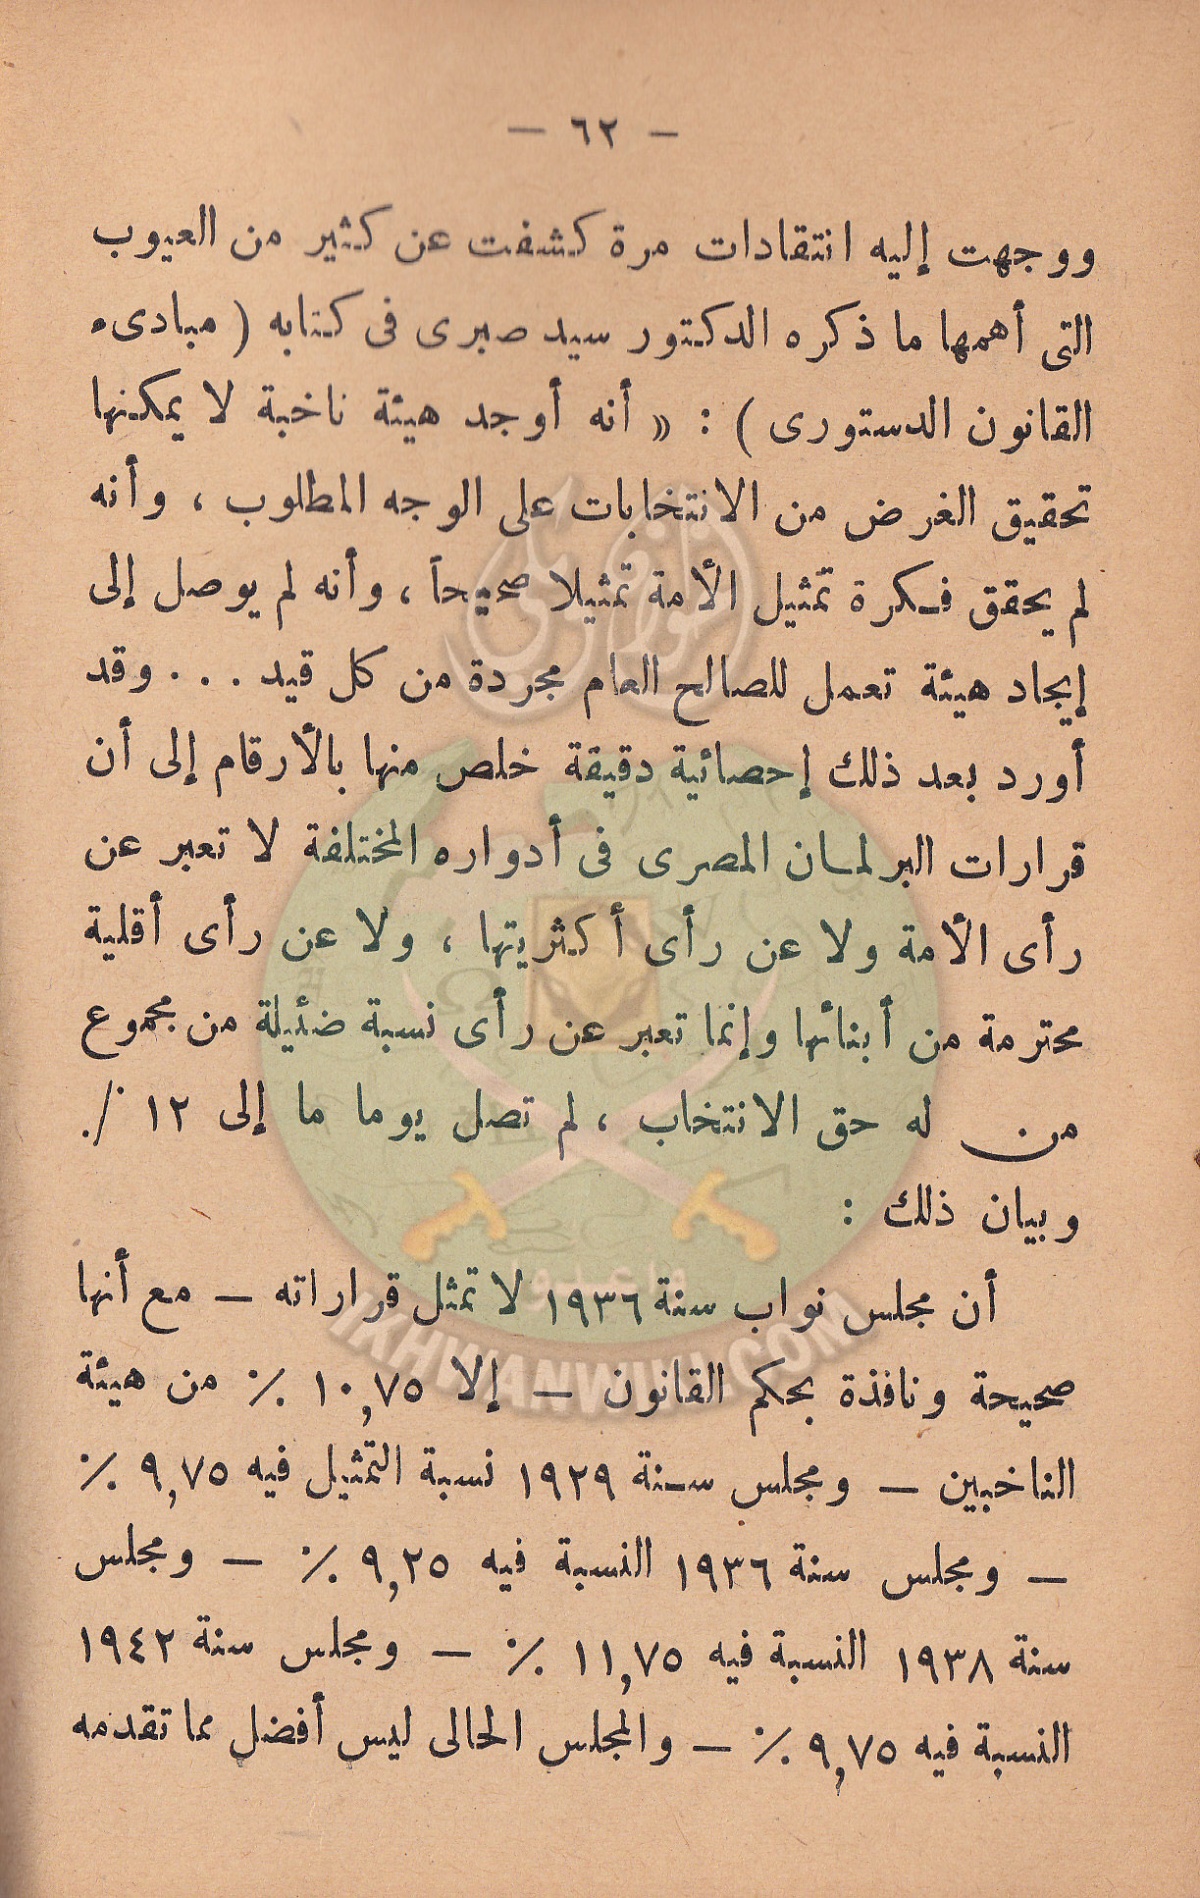 — ٦٢ —
ووجهت إليه انتقادات مرة كشفت عن كثير من العيوب
التى أهمها ما ذكره الدكتور سيد صبرى فى كتابه ( مبادىء
القانون الدستورى ) : « أنه أوجد هيئة ناخبة لا يمكنها
تحقيق الغرض من الانتخابات على الوجه المطلوب ، وأنه
لم يحقق فكرة تمثيل الأمة تمثيلا صحيحاً ، وأنه لم يوصل إلى
إيجاد هيئة تعمل للصالح العام مجردة من كل قيد . . . وقد
أورد بعد ذلك إحصائية دقيقة خلص منها بالأرقام إلى أن
قرارات البرلمان المصرى فى أدواره المختلفة لا تعبر عن
رأى الأمة ولا عن رأى أكثريتها ، ولا عن رأى أقلية
محترمة من أبنائها وإنما تعبر عن رأى نسبة ضئيلة من مجموع
من له حق الانتخاب ، لم تصل يوما ما إلى ١٢ ٪
وبيان ذلك :
أن مجلس نواب سنة ١٩٣٦ لا تمثل قراراته — مع أنها
صحيحة ونافذة بحكم القانون — إلا ١٠,٧٥ ٪ من هيئة
الناخبين — ومجلس سنة ١٩٢٩ نسبة التمثيل فيه ٩,٧٥ ٪
— ومجلس سنة ١٩٣٦ النسبة فيه ٩,٢٥ ٪ — ومجلس
سنة ١٩٣٨ النسبة فيه ١١,٧٥ ٪ — ومجلس سنة ١٩٤٢
النسبة فيه ٩,٧٥ ٪ — والمجلس الحالى ليس أفضل مما تقدمه
وأعدوا
IKHWANWIKI.COM